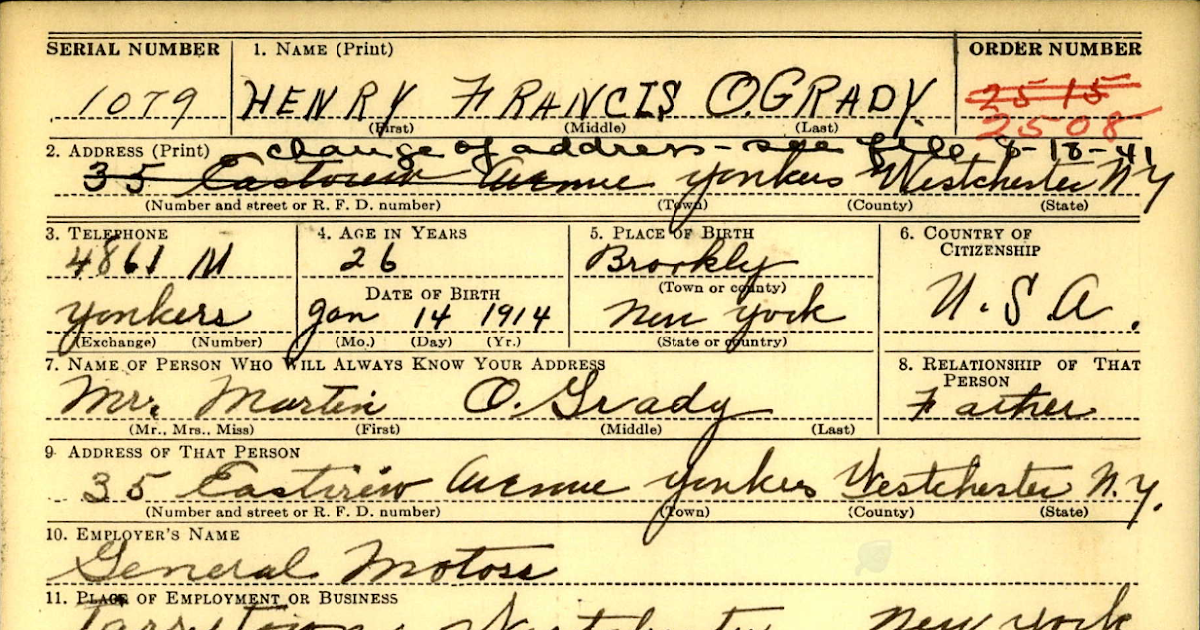 SERIAL NUMBER 1. NAME (Print) ORDER NUMBER
1079 HENRY FRANCIS O.GRADY. 2515
(First) (Middle) (Last) 2508
2. ADDRESS (Print) change of address - see file 8-18-41
35 Eastview Avenue Yonkers Westchester N Y
(Number and street or R. F. D. number) (Town) (County) (State)
3. TELEPHONE 4. AGE IN YEARS 5. PLACE OF BIRTH 6. COUNTRY OF CITIZENSHIP
4861 M 26 Brookly
(Town or county)
DATE OF BIRTH
Yonkers Jan 14 1914 New York U.S.A.
(Exchange) (Number) (Mo.) (Day) (Yr.) (State or country)
7. NAME OF PERSON WHO WILL ALWAYS KNOW YOUR ADDRESS 8. RELATIONSHIP OF THAT PERSON
Mr. Martin O.Grady Father
(Mr., Mrs., Miss) (First) (Middle) (Last)
9. ADDRESS OF THAT PERSON
35 Eastview Avenue Yonkers Westchester N.Y.
(Number and street or R. F. D. number) (Town) (County) (State)
10. EMPLOYER'S NAME
General Motors
11. PLACE OF EMPLOYMENT OR BUSINESS
Tarrytown Westchester New York